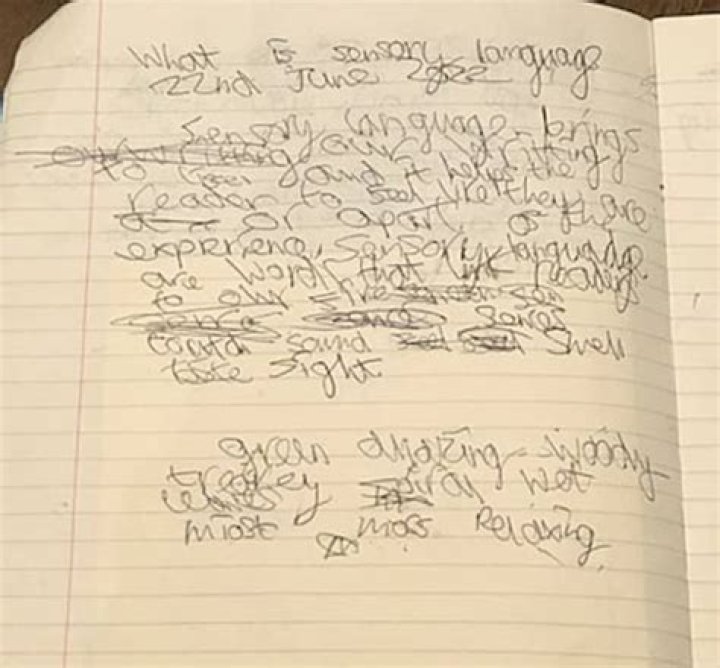 What is sensory language
22nd June 2022
Sensory language brings
our writting
to and it helps the
reader to feel like they are
or apart of there
experience. Sensory language
are words that link reading
to our five
senses
sound smell
taste sight
green amazing woody
wet
miost moss Relaxing